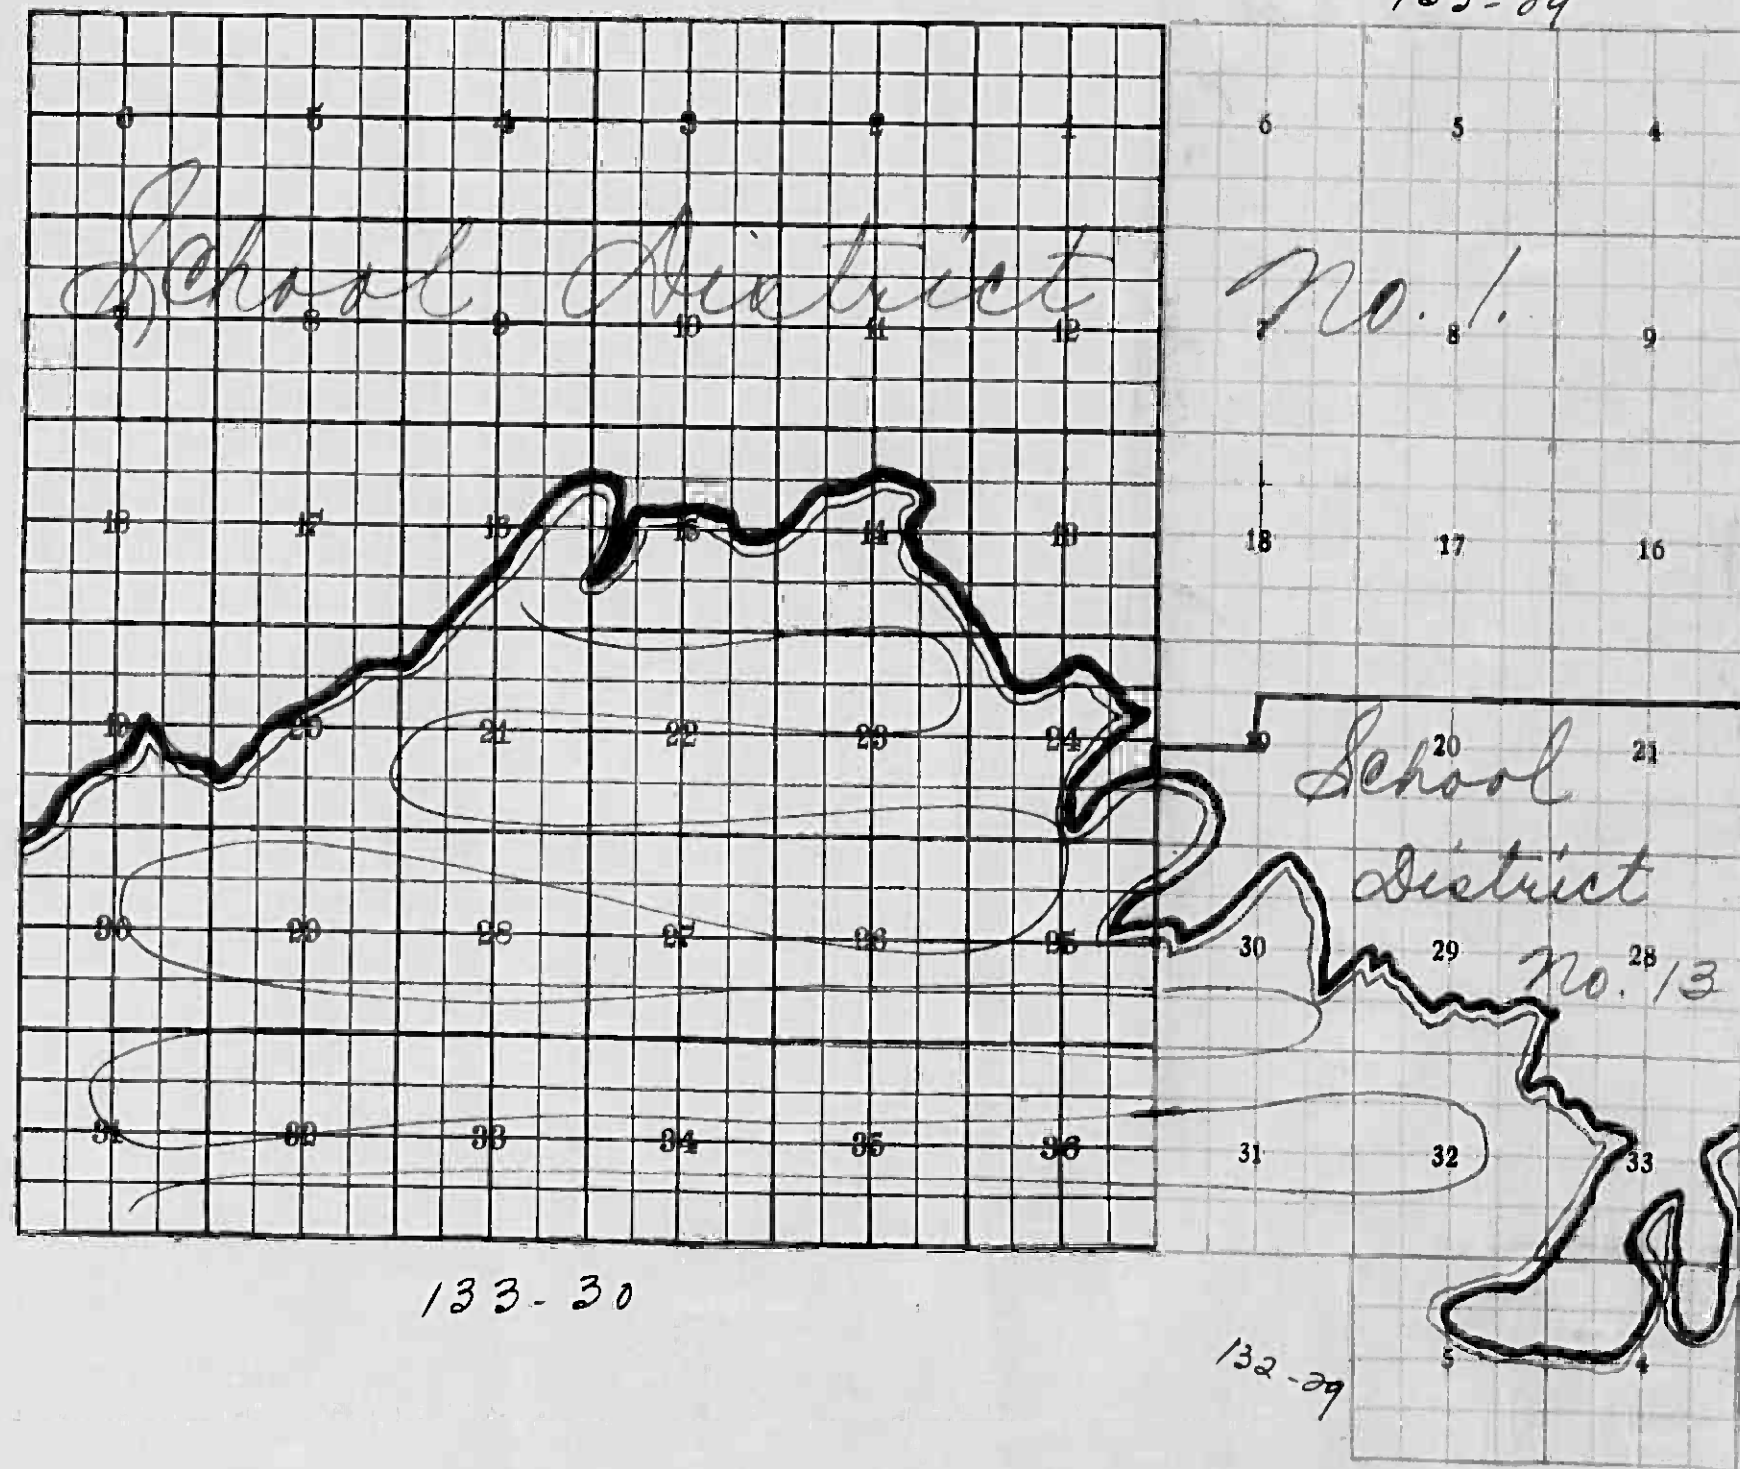 6 5 4 3 2 1 6 5 4
School District No. 1.
7 8 9 10 11 12 7 8 9
18 17 16 15 14 13 18 17 16
19 20 21 22 23 24 19 20 21
School
District
30 29 28 27 26 25 30 29 28
No. 13
31 32 33 34 35 36 31 32 33
133-30
132-29
5 4